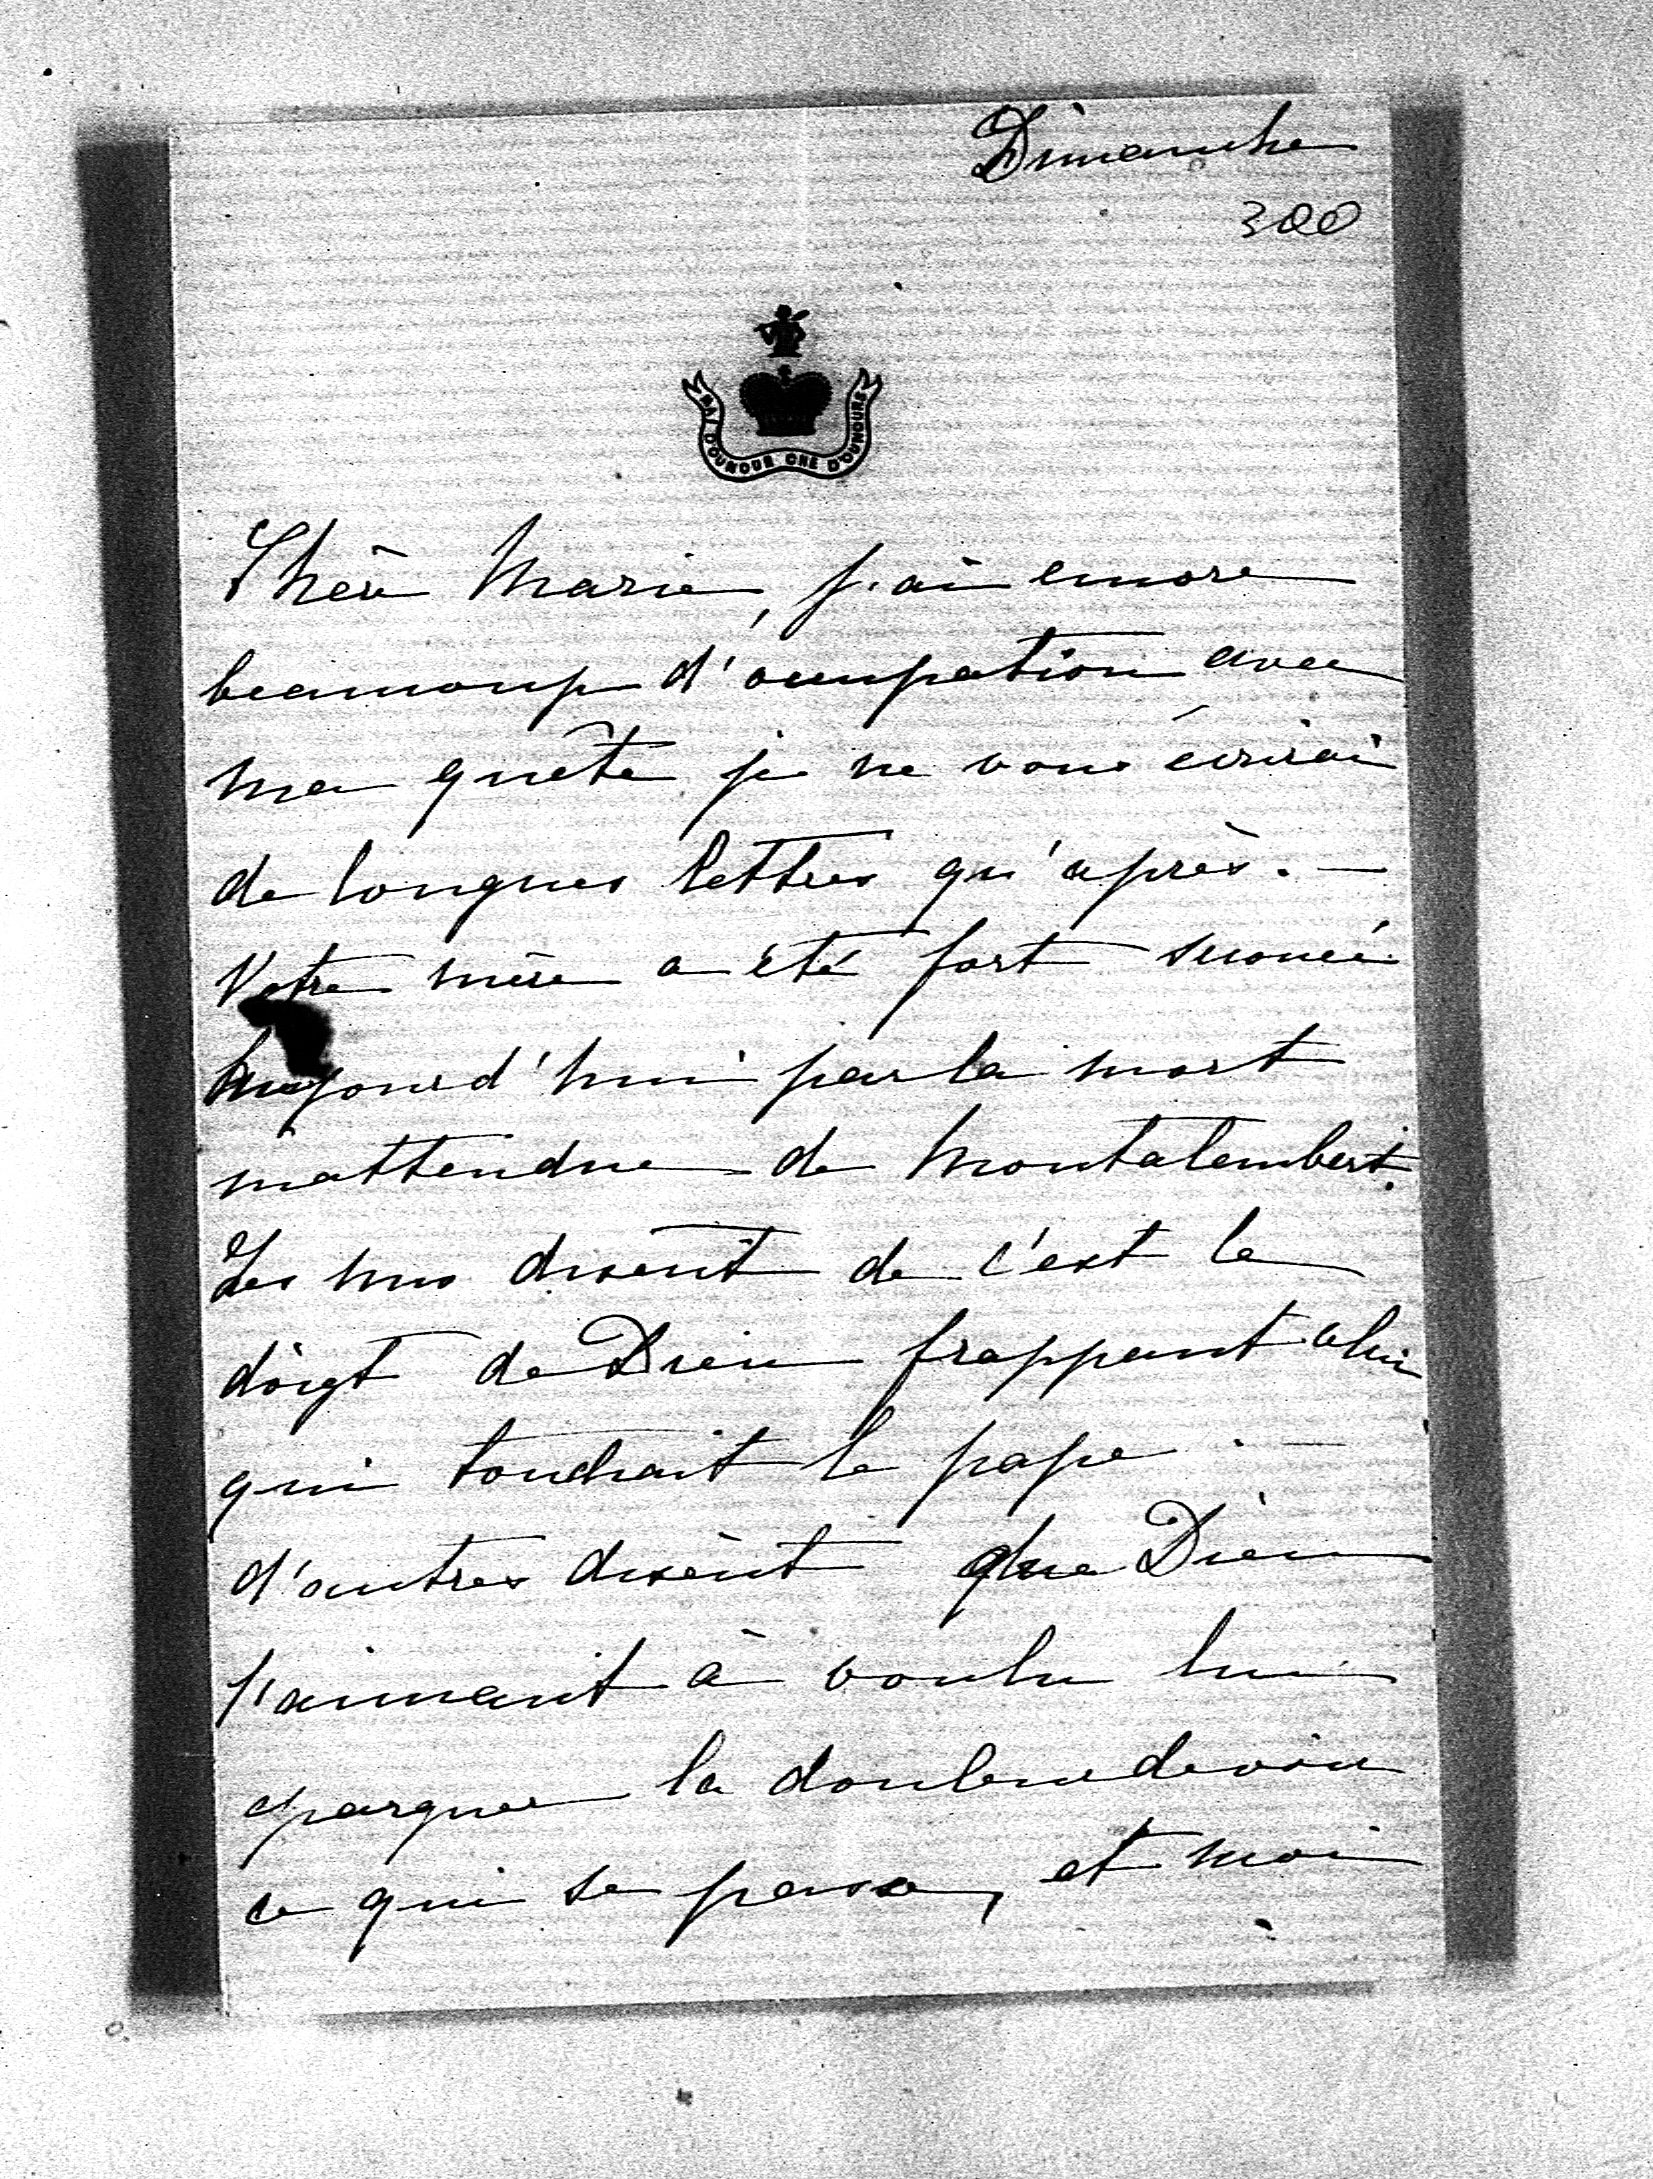 Dimanche
300
MAI D'OUNOUR CHE D'OUNOURS
Chère Marie, j'ai encore
beaucoup d'occupation avec
ma quête je ne vous écrirai
de longues lettres qu'après. —
Votre mère a été fort secouée
aujourd'hui par la mort
inattendue de Montalembert.
Les uns disent de c'est le
doigt de Dieu frappant celui
qui touchait le pape. —
d'autres disent que Dieu
l'aimant a voulu lui
épargner la douleur de voir
ce qui se passe, et moi